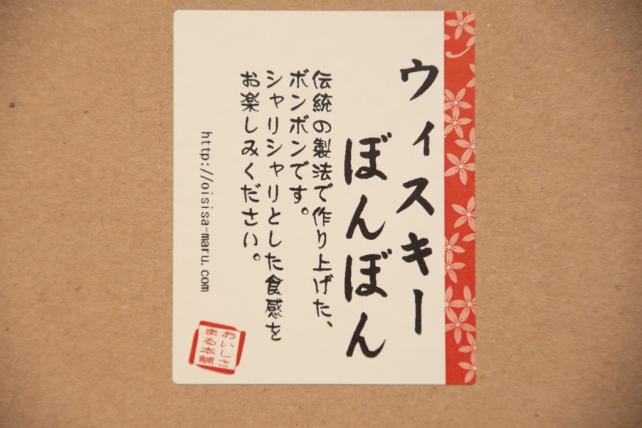 ウィスキー
ぼんぼん
伝統の製法で作り上げた、
ボンボンです。
シャリシャリとした食感を
お楽しみください。
http://oisisa-maru.com
おいしさ
まる本舗